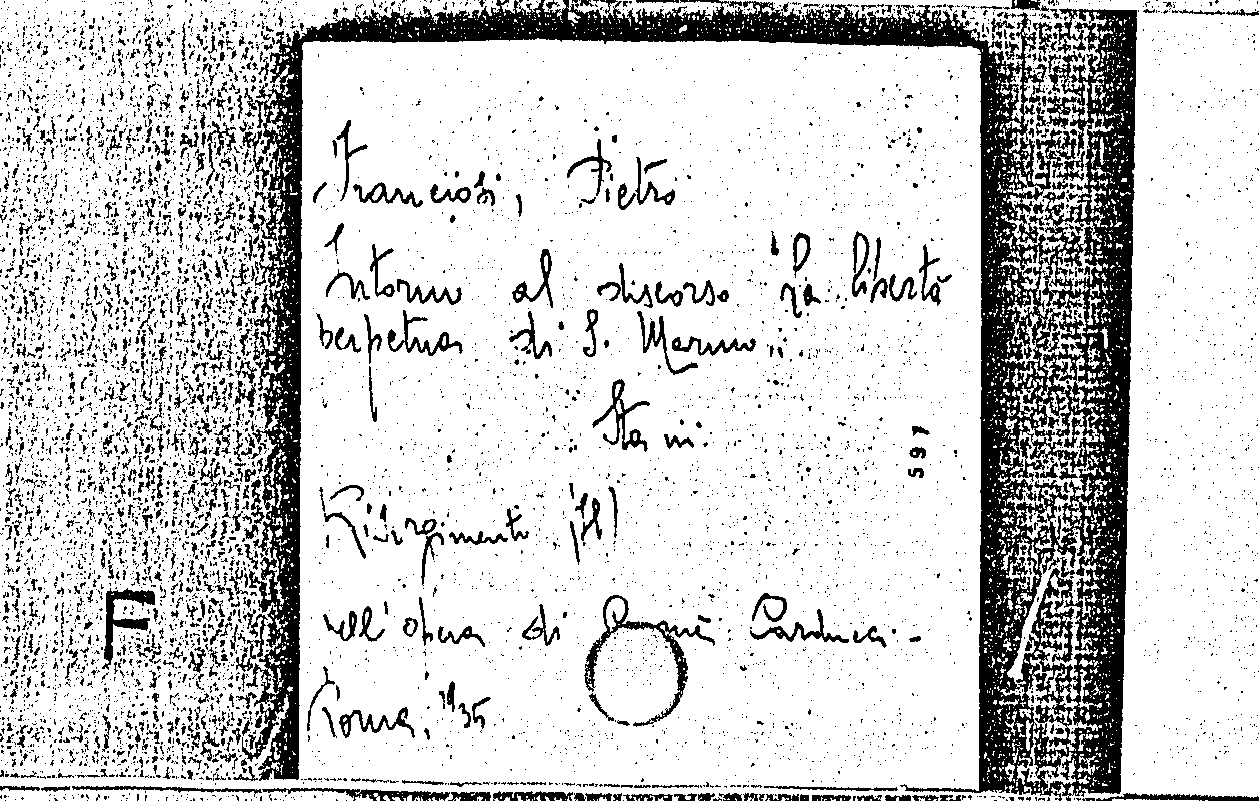 Franciosi, Pietro
Intorno al discorso "La libertà
perpetua di S. Marino".
Sta in:
591
Risorgimento (Il)
nell'opera di Giosuè Carducci -
F
Roma, 1935